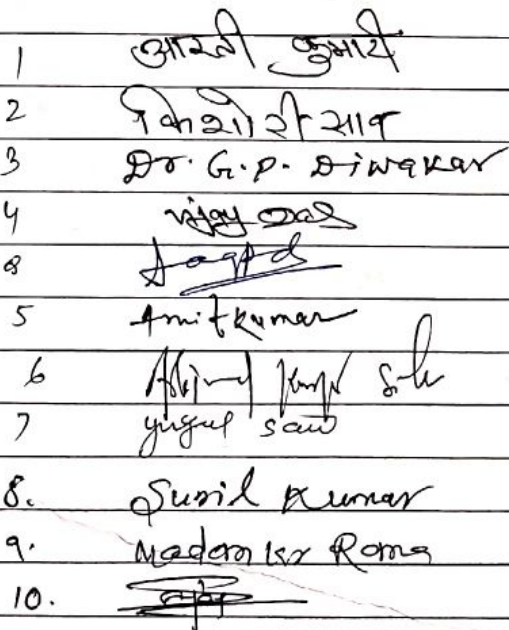 1 आरती कुमारी
2 किशोरी साव
3 Dr. G.P. Diwakar
4 vijay Das
8
5 Amit Kumar
6
7 yugul saw
8. Sunil Kumar
9. Madan kr Rama
10.